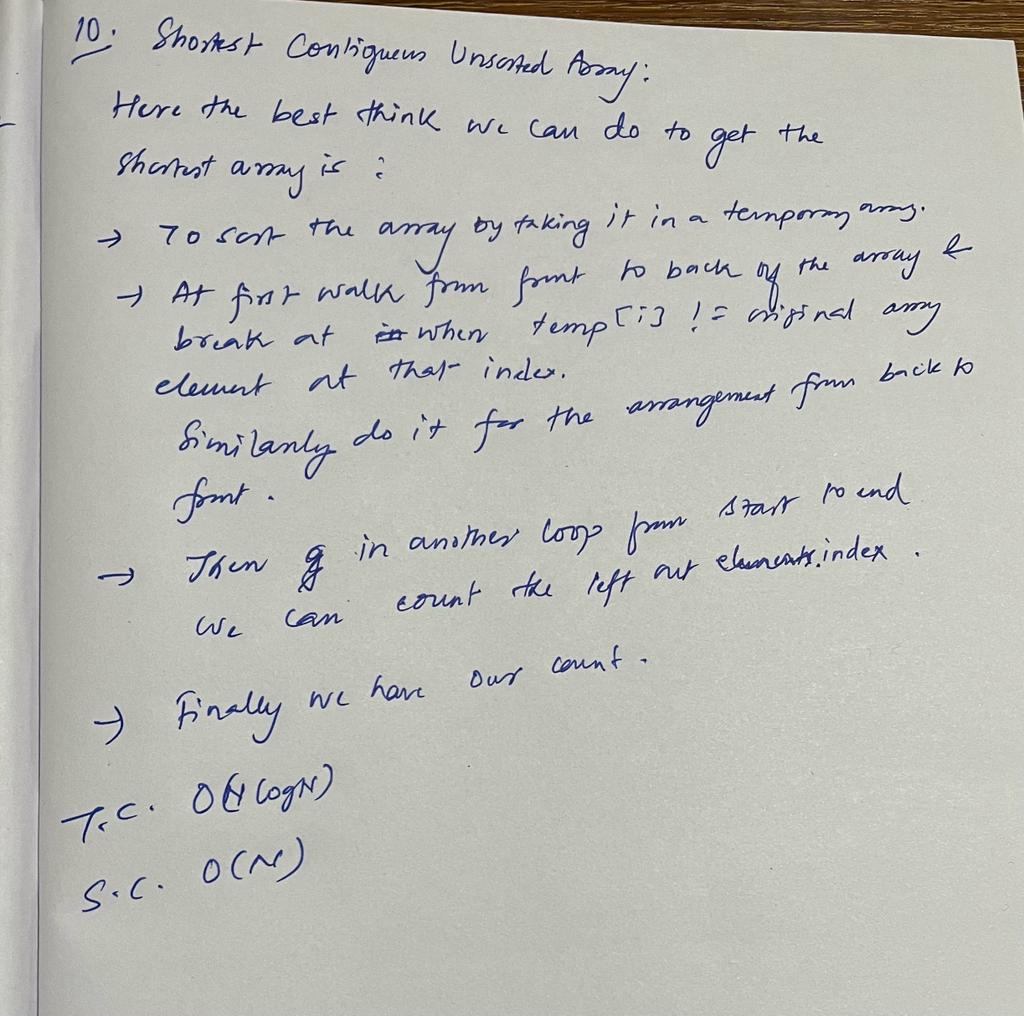 10. Shortest Contiguous Unsorted Array:
Here the best think we can do to get the
shortest array is :
→ To sort the array by taking it in a temporary array.
→ At first walk from front to back of the array &
break at when temp[i] != original array
element at that index.
Similarly do it for the arrangement from back to
front.
→ Then in another loop from start to end
we can count the left out elements index.
→ Finally we have our count.
T.C. O(N logN)
S.C. O(N)